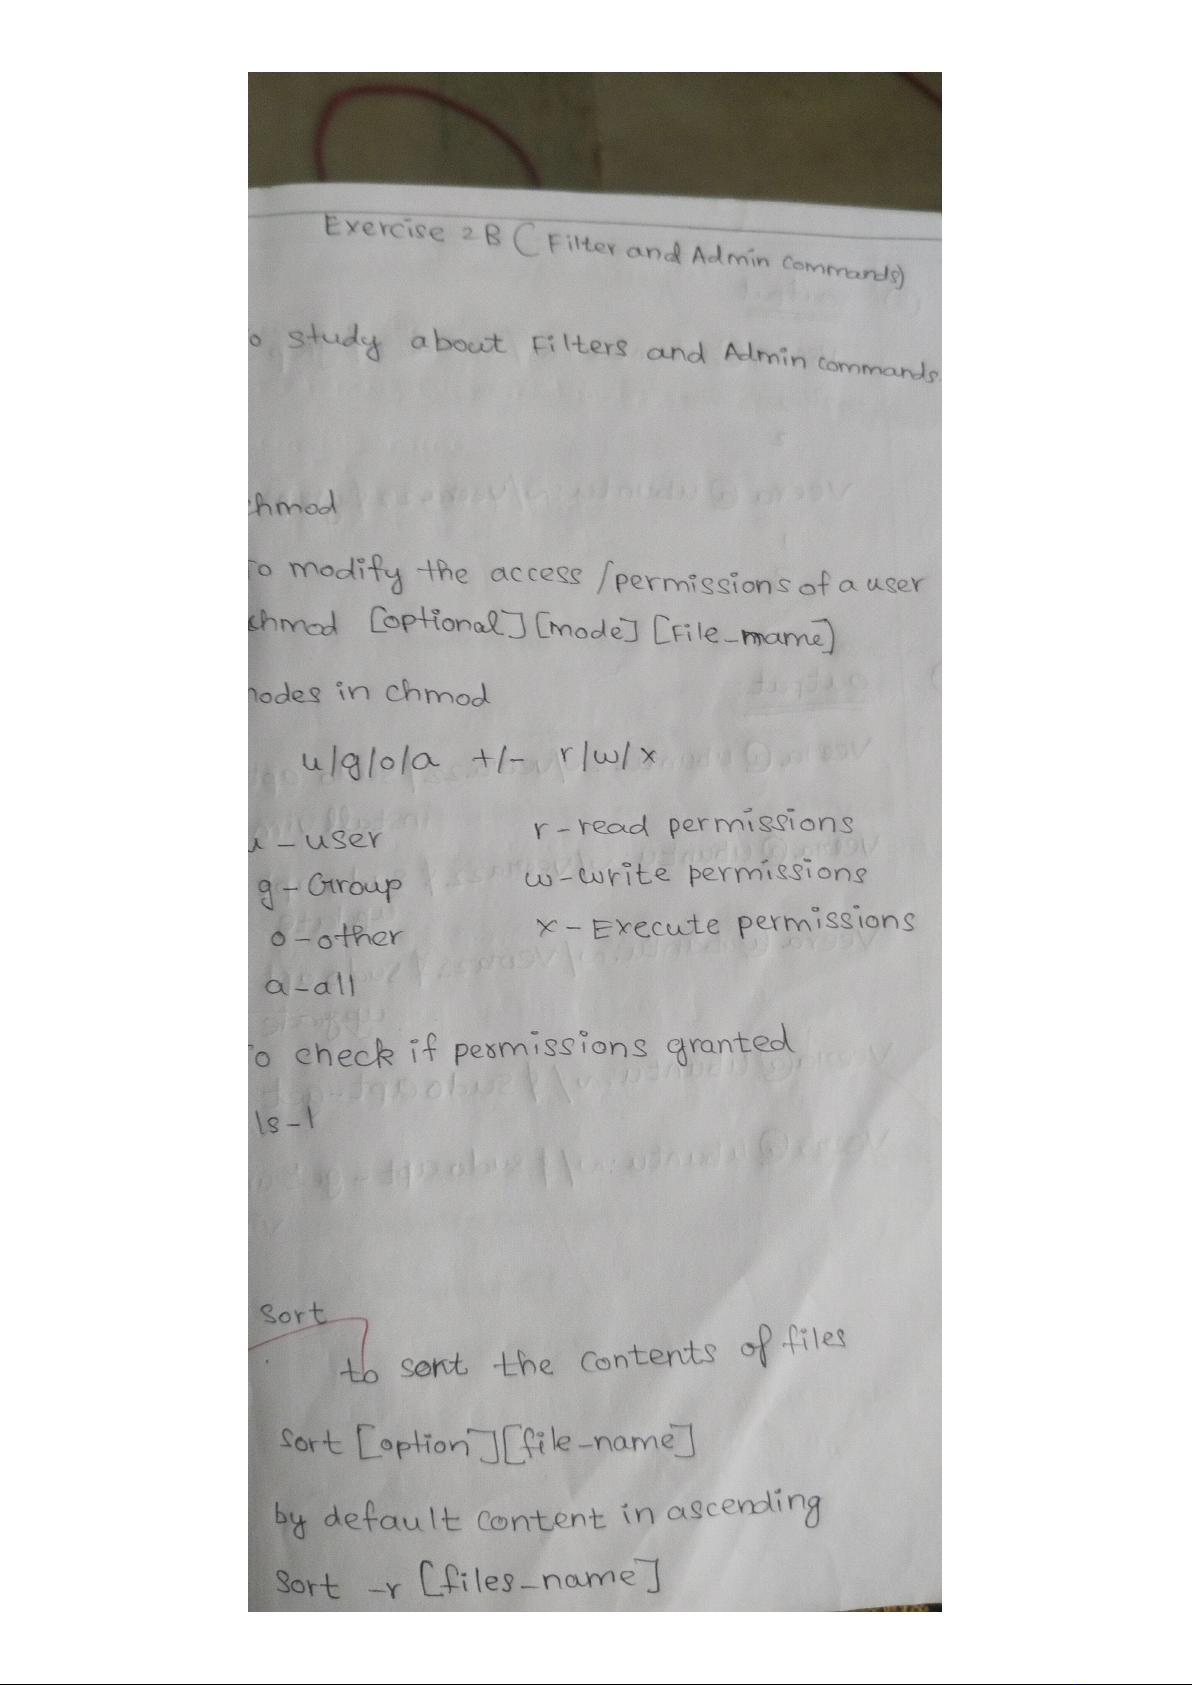 Exercise 2B (Filter and Admin commands)
o study about Filters and Admin commands.
hmod
To modify the access/permissions of a user
chmod [optional] [mode] [File_name]
nodes in chmod
u/g/o/a +/- r/w/x
u - user r - read permissions
g - Group w - write permissions
o - other x - Execute permissions
a - all
To check if permissions granted
ls-l
Sort
to sort the contents of files
sort [option] [file_name]
by default content in ascending
Sort -r [files_name]